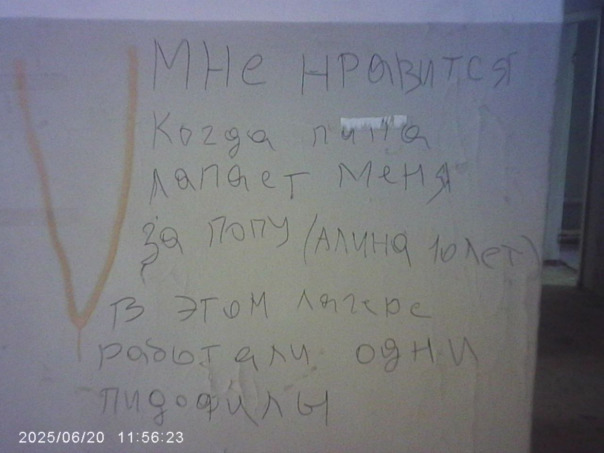 Мне нравится
Когда
лапает меня
за попу (Алина 10 лет)
В этом лагере
работали одни
пидофилы
2025/06/20 11:56:23